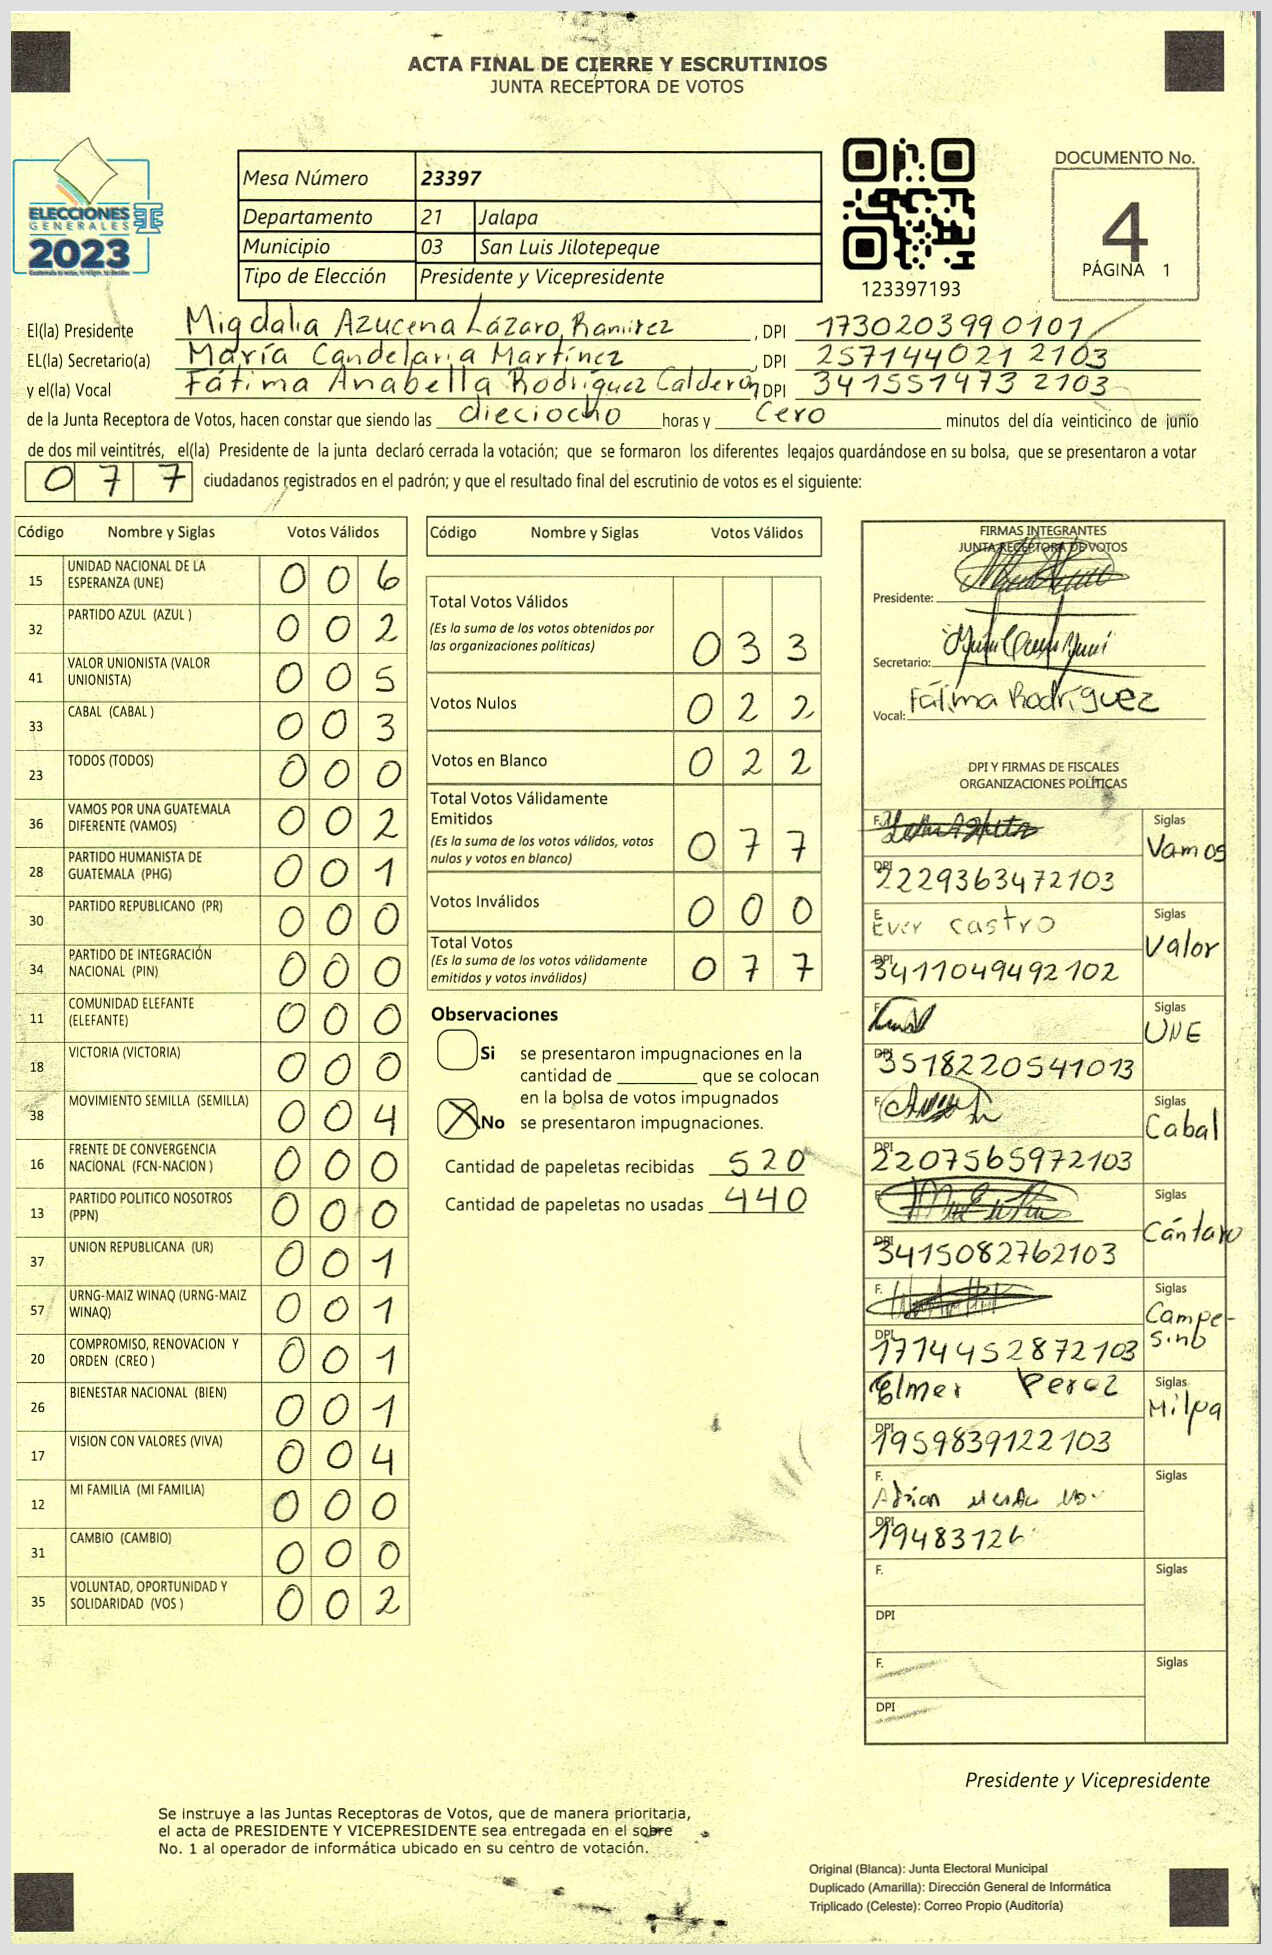 ACTA FINAL DE CIERRE Y ESCRUTINIOS
JUNTA RECEPTORA DE VOTOS
ELECCIONES
GENERALES
2023
Mesa Número 23397
Departamento 21 Jalapa
Municipio 03 San Luis Jilotepeque
Tipo de Elección Presidente y Vicepresidente
123397193
DOCUMENTO No.
4
PÁGINA 1
El(la) Presidente Migdalia Azucena Lázaro Ramirez, DPI 1730203990101
EL(la) Secretario(a) María Candelaria Martínez, DPI 257144021 2103
y el(la) Vocal Fátima Anabella Rodríguez Calderón, DPI 341551473 2103
de la Junta Receptora de Votos, hacen constar que siendo las dieciocho horas y cero minutos del día veinticinco de junio
de dos mil veintitrés, el(la) Presidente de la junta declaró cerrada la votación; que se formaron los diferentes legajos guardándose en su bolsa, que se presentaron a votar
077 ciudadanos registrados en el padrón; y que el resultado final del escrutinio de votos es el siguiente:
Código Nombre y Siglas Votos Válidos
15 UNIDAD NACIONAL DE LA ESPERANZA (UNE) 006
32 PARTIDO AZUL (AZUL ) 002
41 VALOR UNIONISTA (VALOR UNIONISTA) 005
33 CABAL (CABAL ) 003
23 TODOS (TODOS) 000
36 VAMOS POR UNA GUATEMALA DIFERENTE (VAMOS) 002
28 PARTIDO HUMANISTA DE GUATEMALA (PHG) 001
30 PARTIDO REPUBLICANO (PR) 000
34 PARTIDO DE INTEGRACIÓN NACIONAL (PIN) 000
11 COMUNIDAD ELEFANTE (ELEFANTE) 000
18 VICTORIA (VICTORIA) 000
38 MOVIMIENTO SEMILLA (SEMILLA) 004
16 FRENTE DE CONVERGENCIA NACIONAL (FCN-NACION ) 000
13 PARTIDO POLITICO NOSOTROS (PPN) 000
37 UNION REPUBLICANA (UR) 001
57 URNG-MAIZ WINAQ (URNG-MAIZ WINAQ) 001
20 COMPROMISO, RENOVACION Y ORDEN (CREO ) 001
26 BIENESTAR NACIONAL (BIEN) 001
17 VISION CON VALORES (VIVA) 004
12 MI FAMILIA (MI FAMILIA) 000
31 CAMBIO (CAMBIO) 000
35 VOLUNTAD, OPORTUNIDAD Y SOLIDARIDAD (VOS ) 002
Código Nombre y Siglas Votos Válidos
Total Votos Válidos
(Es la suma de los votos obtenidos por
las organizaciones políticas) 033
Votos Nulos 022
Votos en Blanco 022
Total Votos Válidamente
Emitidos
(Es la suma de los votos válidos, votos
nulos y votos en blanco) 077
Votos Inválidos 000
Total Votos
(Es la suma de los votos válidamente
emitidos y votos inválidos) 077
Observaciones
Si se presentaron impugnaciones en la
cantidad de ________ que se colocan
en la bolsa de votos impugnados
X No se presentaron impugnaciones.
Cantidad de papeletas recibidas 520
Cantidad de papeletas no usadas 440
FIRMAS INTEGRANTES
JUNTA RECEPTORA DE VOTOS
Presidente:
Secretario:
Vocal: Fátima Rodríguez
DPI Y FIRMAS DE FISCALES
ORGANIZACIONES POLÍTICAS
F. Siglas Vamos
DPI 2229363472103
F. Ever Castro Siglas Valor
DPI 3411049492102
F. Siglas UNE
DPI 3518220541013
F. Siglas Cabal
DPI 2207565972103
F. Siglas Cántaro
DPI 3415082762103
F. Siglas Campe-
sino
DPI 1714452872103
Elmer Perez Siglas Milpa
DPI 1959839122103
F. Adrian Siglas
DPI 19483126
F. Siglas
DPI
F. Siglas
DPI
Presidente y Vicepresidente
Se instruye a las Juntas Receptoras de Votos, que de manera prioritaria,
el acta de PRESIDENTE Y VICEPRESIDENTE sea entregada en el sobre
No. 1 al operador de informática ubicado en su centro de votación.
Original (Blanca): Junta Electoral Municipal
Duplicado (Amarilla): Dirección General de Informática
Triplicado (Celeste): Correo Propio (Auditoría)